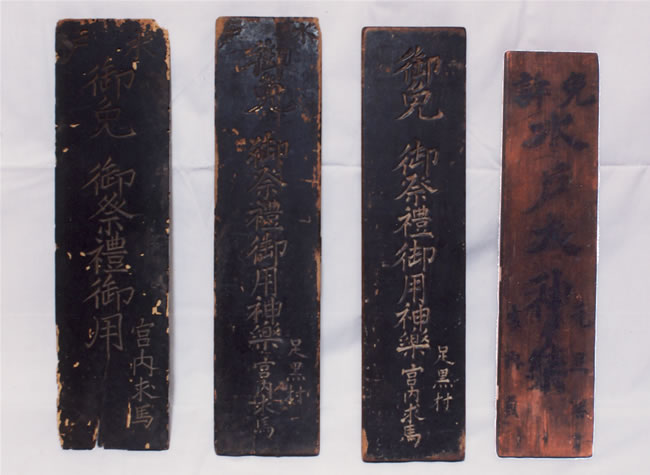 水
御免 御祭禮御用
宮内求馬
水
御免 御祭禮御用神樂
足黒村
宮内求馬
御免 御祭禮御用神樂
足黒村
宮内求馬
免許
水戸大神樂